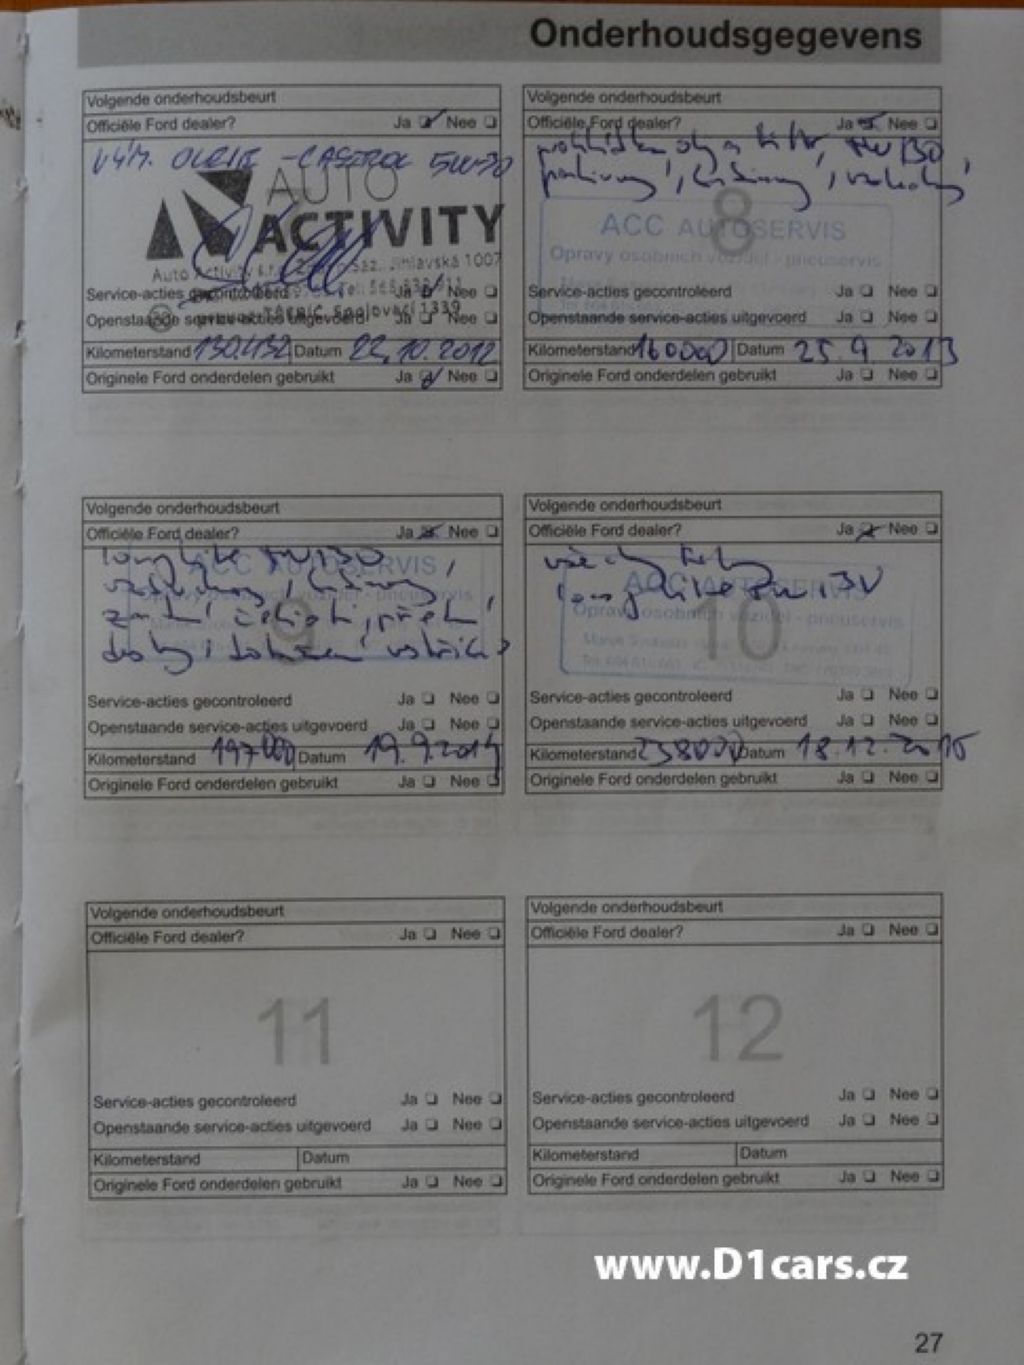 Onderhoudsgegevens
Volgende onderhoudsbeurt
Officiële Ford dealer? Ja Nee
VÝM. OLEJE - CASTROL 5W-30
AUTO
ACTIVITY
Service-acties gecontroleerd Ja Nee
Openstaande service-acties uitgevoerd Ja Nee
Kilometerstand 130.432 Datum 22.10.2012
Originele Ford onderdelen gebruikt Ja Nee
Volgende onderhoudsbeurt
Officiële Ford dealer? Ja Nee
8
ACC AUTOSERVIS
Opravy osobních vozidel - pneuservis
Service-acties gecontroleerd Ja Nee
Openstaande service-acties uitgevoerd Ja Nee
Kilometerstand 160000 Datum 25.9.2013
Originele Ford onderdelen gebruikt Ja Nee
Volgende onderhoudsbeurt
Officiële Ford dealer? Ja Nee
ACC AUTOSERVIS
9
Service-acties gecontroleerd Ja Nee
Openstaande service-acties uitgevoerd Ja Nee
Kilometerstand 197000 Datum 19.9.2014
Originele Ford onderdelen gebruikt Ja Nee
Volgende onderhoudsbeurt
Officiële Ford dealer? Ja Nee
ACC AUTOSERVIS
Opravy osobních vozidel - pneuservis
10
Service-acties gecontroleerd Ja Nee
Openstaande service-acties uitgevoerd Ja Nee
Kilometerstand 238000 Datum 18.12.
Originele Ford onderdelen gebruikt Ja Nee
Volgende onderhoudsbeurt
Officiële Ford dealer? Ja Nee
11
Service-acties gecontroleerd Ja Nee
Openstaande service-acties uitgevoerd Ja Nee
Kilometerstand Datum
Originele Ford onderdelen gebruikt Ja Nee
Volgende onderhoudsbeurt
Officiële Ford dealer? Ja Nee
12
Service-acties gecontroleerd Ja Nee
Openstaande service-acties uitgevoerd Ja Nee
Kilometerstand Datum
Originele Ford onderdelen gebruikt Ja Nee
www.D1cars.cz
27